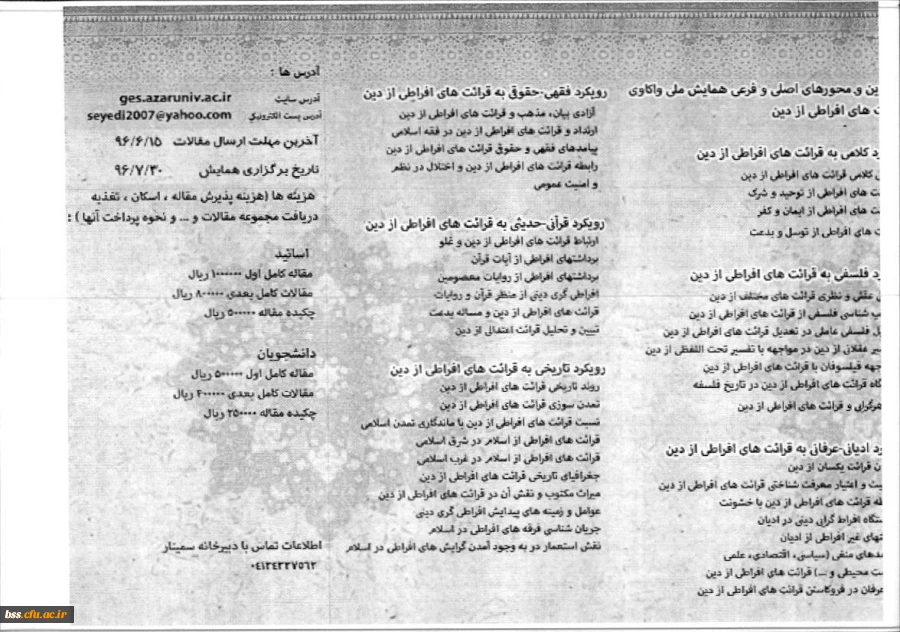 ین و محورهای اصلی و فرعی همایش ملی واکاوی
ت های افراطی از دین
د کلامی به قرائت های افراطی از دین
کلامی قرائت های افراطی از دین
ت های افراطی از توحید و شرک
ت های افراطی از ایمان و کفر
ت های افراطی از توسل و بدعت
د فلسفی به قرائت های افراطی از دین
عقلی و نظری قرائت های مختلف از دین
ب شناسی فلسفی از قرائت های افراطی از دین
ل فلسفی عاملی در تعدیل قرائت های افراطی از دین
یر عقلانی از دین در مواجهه با تفسیر تحت اللفظی از دین
جهه فیلسوفان با قرائت های افراطی از دین
گاه قرائت های افراطی از دین در تاریخ فلسفه
هرگرایی و قرائت های افراطی از دین
د ادیانی-عرفانی به قرائت های افراطی از دین
ن قرائت یکسان از دین
یت و اعتبار معرفت شناختی قرائت های افراطی از دین
طه قرائت های افراطی از دین با خشونت
ستگاه افراط گرایی دینی در ادیان
تهای غیر افراطی از ادیان
مدهای منفی (سیاسی، اقتصادی، علمی
ست محیطی و ...) قرائت های افراطی از دین
عرفان در فروکاستن قرائت های افراطی از دین
رویکرد فقهی-حقوقی به قرائت های افراطی از دین
آزادی بیان، مذهب و قرائت های افراطی از دین
ارتداد و قرائت های افراطی از دین در فقه اسلامی
پیامدهای فقهی و حقوق قرائت های افراطی از دین
رابطه قرائت های افراطی از دین و اختلال در نظم
و امنیت عمومی
رویکرد قرآنی-حدیثی به قرائت های افراطی از دین
ارتباط قرائت های افراطی از دین و غلو
برداشتهای افراطی از آیات قرآن
برداشتهای افراطی از روایات معصومین
افراطی گری دینی از منظر قرآن و روایات
قرائت های افراطی از دین و مساله بدعت
تبیین و تحلیل قرائت اعتدالی از دین
رویکرد تاریخی به قرائت های افراطی از دین
روند تاریخی قرائت های افراطی از دین
تمدن سوزی قرائت های افراطی از دین
نسبت قرائت های افراطی از دین با ماندگاری تمدن اسلامی
قرائت های افراطی از اسلام در شرق اسلامی
قرائت های افراطی از اسلام در غرب اسلامی
جغرافیای تاریخی قرائت های افراطی از دین
میراث مکتوب و نقش آن در قرائت های افراطی از دین
عوامل و زمینه های پیدایش افراطی گری دینی
جریان شناسی فرقه های افراطی در اسلام
نقش استعمار در به وجود آمدن گرایش های افراطی در اسلام
آدرس ها :
آدرس سایت ges.azaruniv.ac.ir
آدرس پست الکترونیکی seyedi2007@yahoo.com
آخرین مهلت ارسال مقالات ۹۶/۶/۱۵
تاریخ برگزاری همایش ۹۶/۷/۳۰
هزینه ها (هزینه پذیرش مقاله ، اسکان ، تغذیه
دریافت مجموعه مقالات و ... و نحوه پرداخت آنها ) :
اساتید
مقاله کامل اول ۱۰۰۰۰۰۰ ریال
مقالات کامل بعدی ۸۰۰۰۰۰ ریال
چکیده مقاله ۵۰۰۰۰۰ ریال
دانشجویان
مقاله کامل اول ۵۰۰۰۰۰ ریال
مقالات کامل بعدی ۴۰۰۰۰۰ ریال
چکیده مقاله ۲۵۰۰۰۰ ریال
اطلاعات تماس با دبیرخانه سمینار
۰۴۱۳۴۳۲۷۵۶۲
bss.cfu.ac.ir